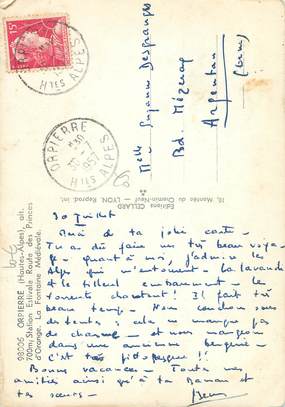 15
ORPIERRE
Htes ALPES
ORPIERRE
30-7
1957
Htes ALPES
Melle Suzanne Desgranges
Bd. Mézeray
Argentan
(Orne)
Editions CELLARD
10, Montée du Chemin-Neuf - LYON. Reprod. int.
98006 ORPIERRE (Hautes-Alpes), alt.
700m, Station Estivale Route des Princes
d'Orange. La Fontaine Médiévale.
30 Juillet
Merci de ta jolie carte.
Tu as dû faire un très beau voya-
ge - quant à moi, j'admire les
Alpes qui m'entourent. La lavande
et le tilleul embaument - les
torrents chantent! Il fait très
beau temps. Nous couchons sous
des tentes; cela ne manque pas
de charme - et nous mangeons
dans une ancienne bergerie -
c'est très pittoresque!!
Bonnes vacances - Toutes mes
amitiés ainsi qu'à ta Maman et
tes sœurs -